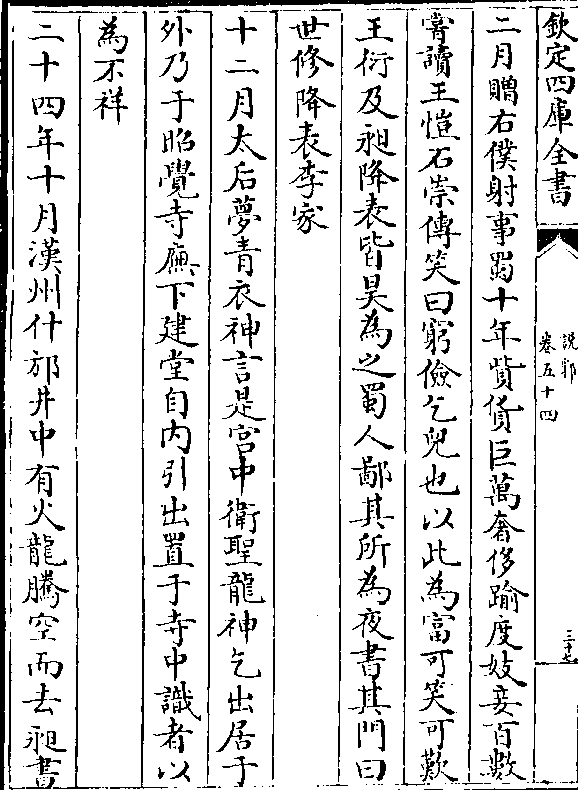 欽定四庫全書
說郛
卷五十四
三十七
二月贈右僕射事蜀十年貲貨巨萬奢侈踰度妓妾百數
嘗讀王愷石崇傳笑曰窮儉乞兒也以此為富可笑可歎
王衍及昶降表皆昊為之蜀人鄙其所為夜書其門曰
世修降表李家
十二月太后夢青衣神言是宮中衛聖龍神乞出居于
外乃于昭覺寺廡下建堂自内引出置于寺中識者以
為不祥
二十四年十月漢州什邡井中有火龍騰空而去昶書